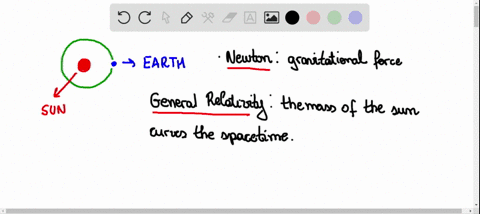 · Newton: gravitational force
EARTH
SUN
General Relativity: the mass of the sun
curves the spacetime.